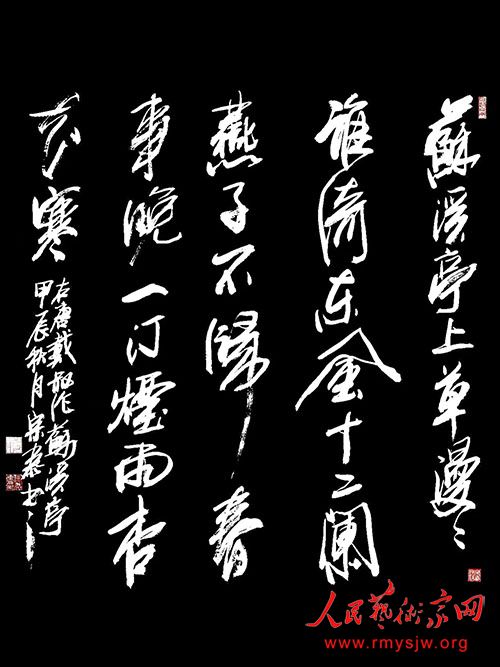 蘇溪亭上草漫〻
誰倚东風十二闌
燕子不歸春
事晚一汀煙雨杏
花寒
右唐戴作蘇溪亭
甲辰秋月宗泰书
人民藝術家网
www.rmysjw.org